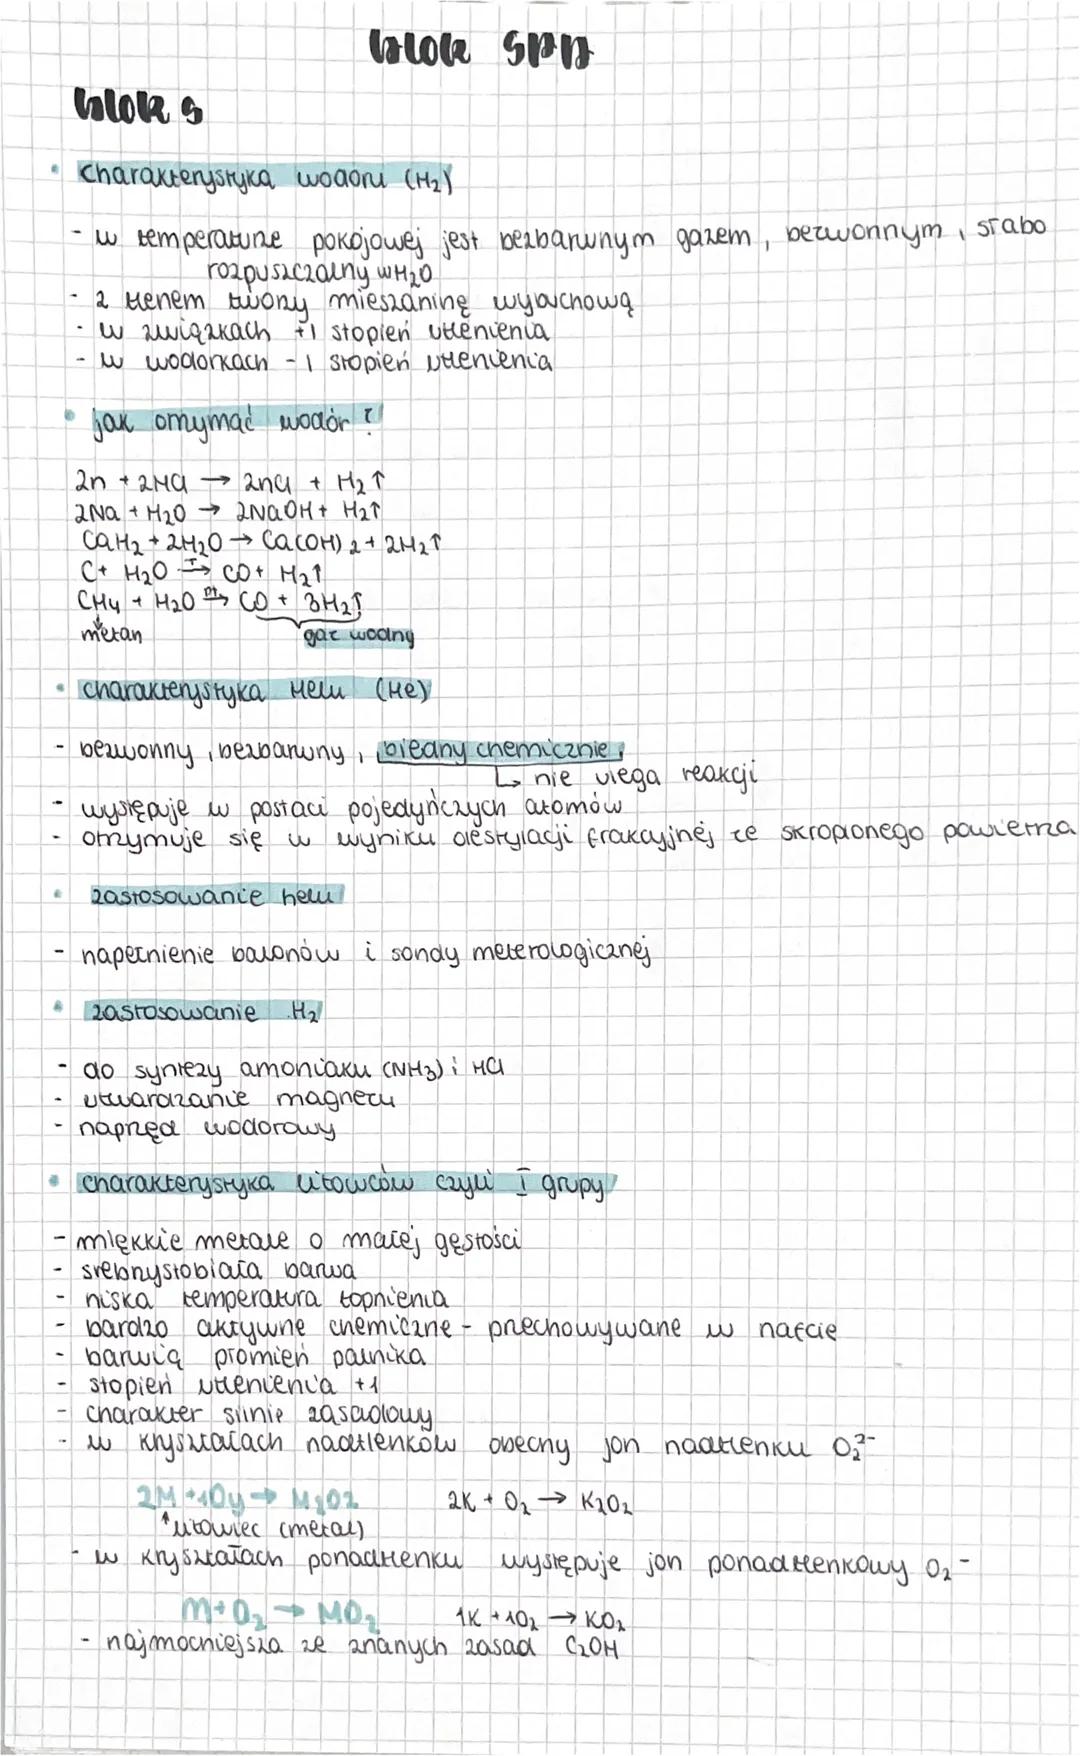 blok SPD
blok s
• charakterystyka wodoru (H₂)
- w temperaturze pokojowej jest bezbarwnym gazem, bezwonnym, słabo
rozpuszczalny w H₂O
- z tlenem tworzy mieszaninę wybuchową
- w związkach +1 stopień utlenienia
- w wodorkach -1 stopień utlenienia
• jak otrzymać wodór?
Zn + 2HCl → ZnCl + H₂↑
2Na + H₂O → 2NaOH + H₂↑
CaH₂ + 2H₂O → Ca(OH)₂ + 2H₂↑
C + H₂O –T→ CO + H₂↑
CH₄ + H₂O –Pt→ CO + 3H₂↑
metan gaz wodny
• charakterystyka Helu (He)
- bezwonny, bezbarwny, bierny chemicznie,
↳ nie ulega reakcji
- występuje w postaci pojedyńczych atomów
- otrzymuje się w wyniku destylacji frakcyjnej ze skroplonego powietrza
• zastosowanie helu
- napełnienie balonów i sondy meterologicznej
• zastosowanie H₂
- do syntezy amoniaku (NH₃) i HCl
- utwardzanie magnezu
- napręd wodorowy
• charakterystyka litowców czyli I grupy
- miękkie metale o małej gęstości
- srebrzystobiała barwa
- niska temperatura topnienia
- bardzo aktywne chemiczne - przechowywane w nafcie
- barwią promień palnika
- stopień utlenienia +1
- charakter silnie zasadowy
- w kryształach nadtlenków obecny jon nadtlenku O₂²⁻
2K + O₂ → K₂O₂
↑litowiec (metal)
- w kryształach ponadtlenku występuje jon ponadtlenkowy O₂⁻
M + O₂ → MO₂ 1K + 1O₂ → KO₂
- najmocniejsza ze znanych zasad CsOH